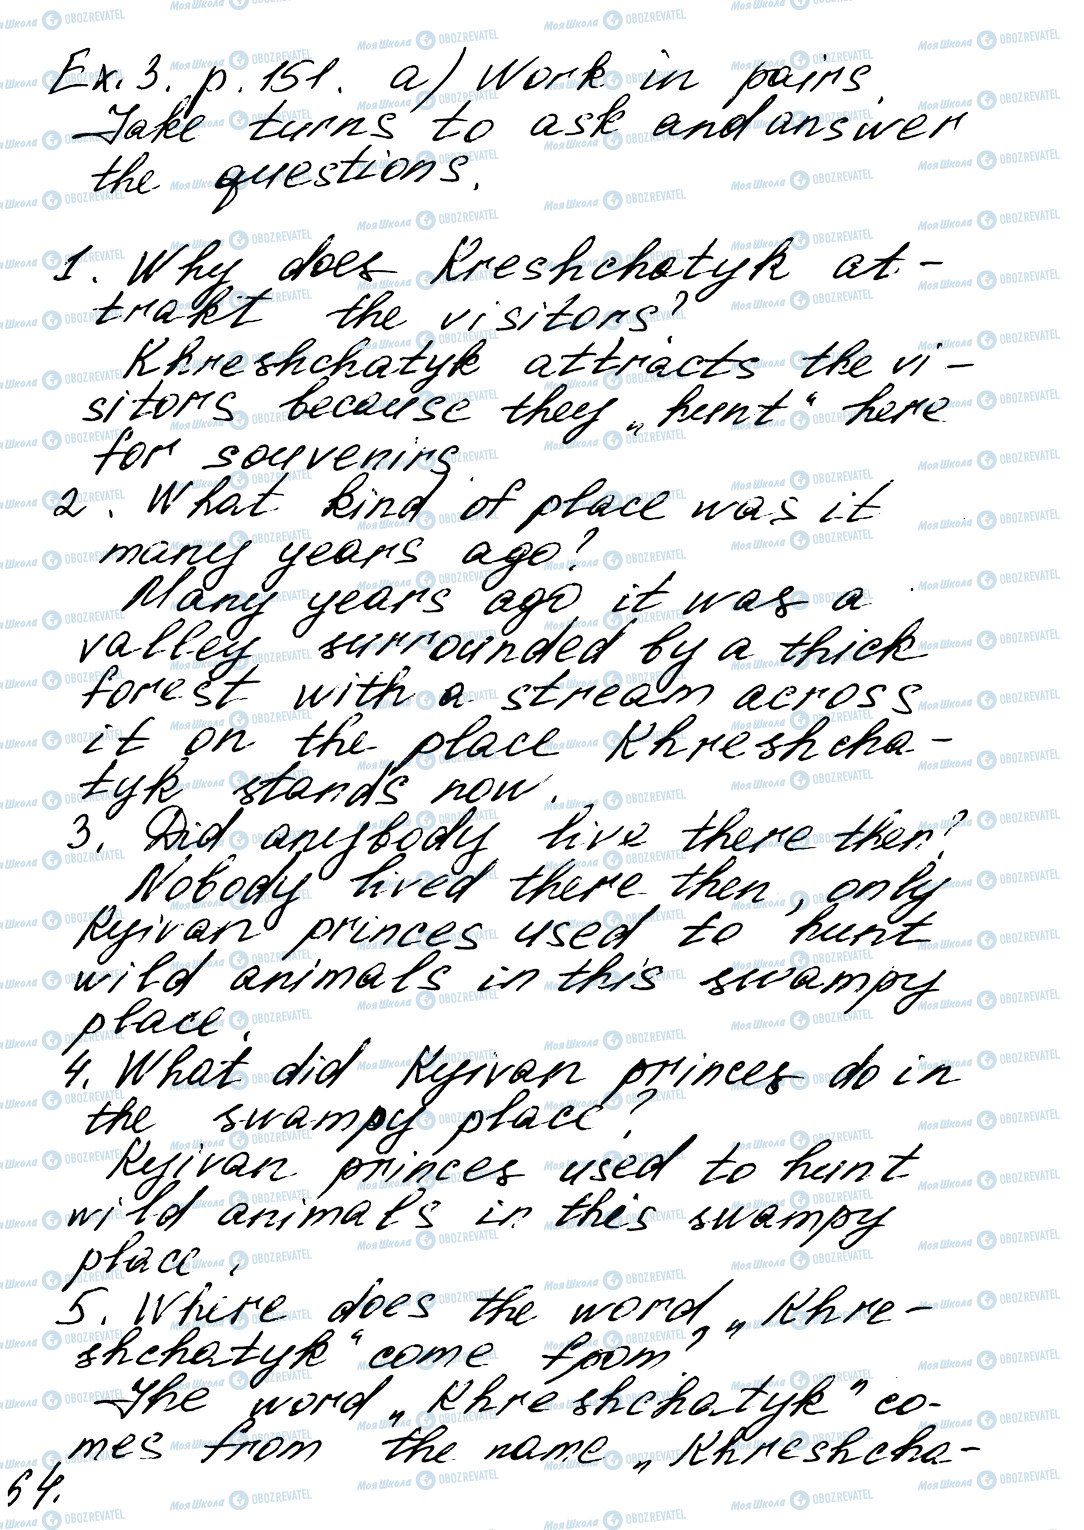 Ex. 3. p. 151. a) Work in pairs.
Take turns to ask and answer
the questions.
1. Why does Kreshchatyk at-
trakt the visitors?
Khreshchatyk attracts the vi-
sitors because they „hunt“ here
for souvenirs.
2. What kind of place was it
many years ago?
Many years ago it was a
valley surrounded by a thick
forest with a stream across
it on the place Khreshcha-
tyk stands now.
3. Did anybody live there then?
Nobody lived there then, only
Kyivan princes used to hunt
wild animals in this swampy
place.
4. What did Kyivan princes do in
the swampy place?
Kyivan princes used to hunt
wild animals in this swampy
place.
5. Where does the word „Khre-
shchatyk“ come from?
The word „Khreshchatyk“ co-
mes from the name „Khreshcha-
54.